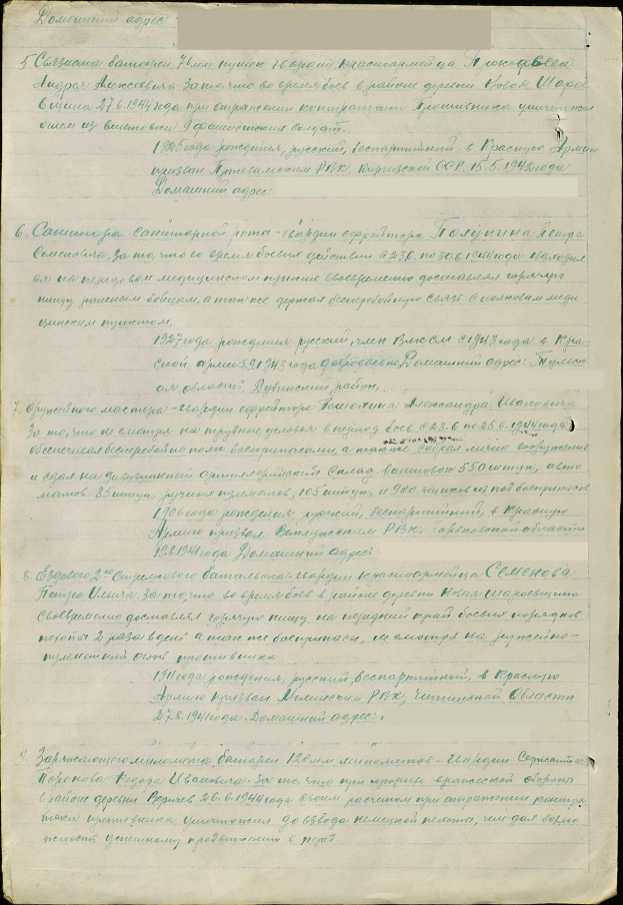 Домашний адрес:
5. Связиста батареи 76мм пушек гвардии красноармейца Прокофьева
Андрея Алексеевича За то, что во время боев в районе деревни Новая Шаров-
ковщина 27.6.1944 года при отражении контратаки Противника уничтожил
огнем из винтовки 9 фашистских солдат.
1925 года рождения, русский, беспартийный, в Красную Армию
призван РВК, Киргизской ССР, 15.5.1943 года
Домашний адрес:
6. Санитара санитарной роты - гвардии ефрейтора Полунина Петра
Семеновича, за то, что во время боевых действий с 23.6. по 30.6.1944 года находил
ся на передовом медицинском пункте своевременно доставлял горячую
пищу раненым бойцам, а так же держал бесперебойную связь с полковым меди
цинским пунктом,
1927 года рождения русский, член ВЛКСМ с 1943 года в Кра-
сной армии 1943 года добровольно Домашний адрес: Тульск-
ая область, район,
7. Оружейного мастера - гвардии ефрейтора Александра Ивановича
За то, что не смотря на трудные условия в период боев с 23.6 по 25.6.1944 года
обеспечивал бесперебойно полк боеприпасами, а также собрал лично вооружение
и сдал на дивизионный артиллерийский склад винтовок 550 штук, авто
матов - 85 штук, ручных пулеметов, 105 штук, и 900 ящиков из под боеприпасов
1906 года рождения, русский, беспартийный, в Красную
Армию призван Ветлужским РВК, Горьковской области
1941 года Домашний адрес:
8. Ездового 2го Стрелкового батальона гвардии красноармейца Семенова
Петра Ильича За то, что во время боев в районе деревни Новая
своевременно доставлял горячую пищу на передний край боевых порядков
пехоты 2 раза в день а так же боеприпасы, не смотря на ружейно-
пулеметный огонь противника
1911 года рождения, русский, беспартийный, в Красную
Армию призван РВК, Читинской Области
27.8.1941 года. Домашний адрес:
9. Заряжающего миномета батареи 120мм минометов - гвардии Сержанта
Федора Ивановича. За то, что при прорыве вражеской обороны
в районе деревни 26.6.1944 года своим расчетом при отражении контра
таки противника уничтожил до взвода немецкой пехоты, чем дал возмо
жность успешному продвижению в перед